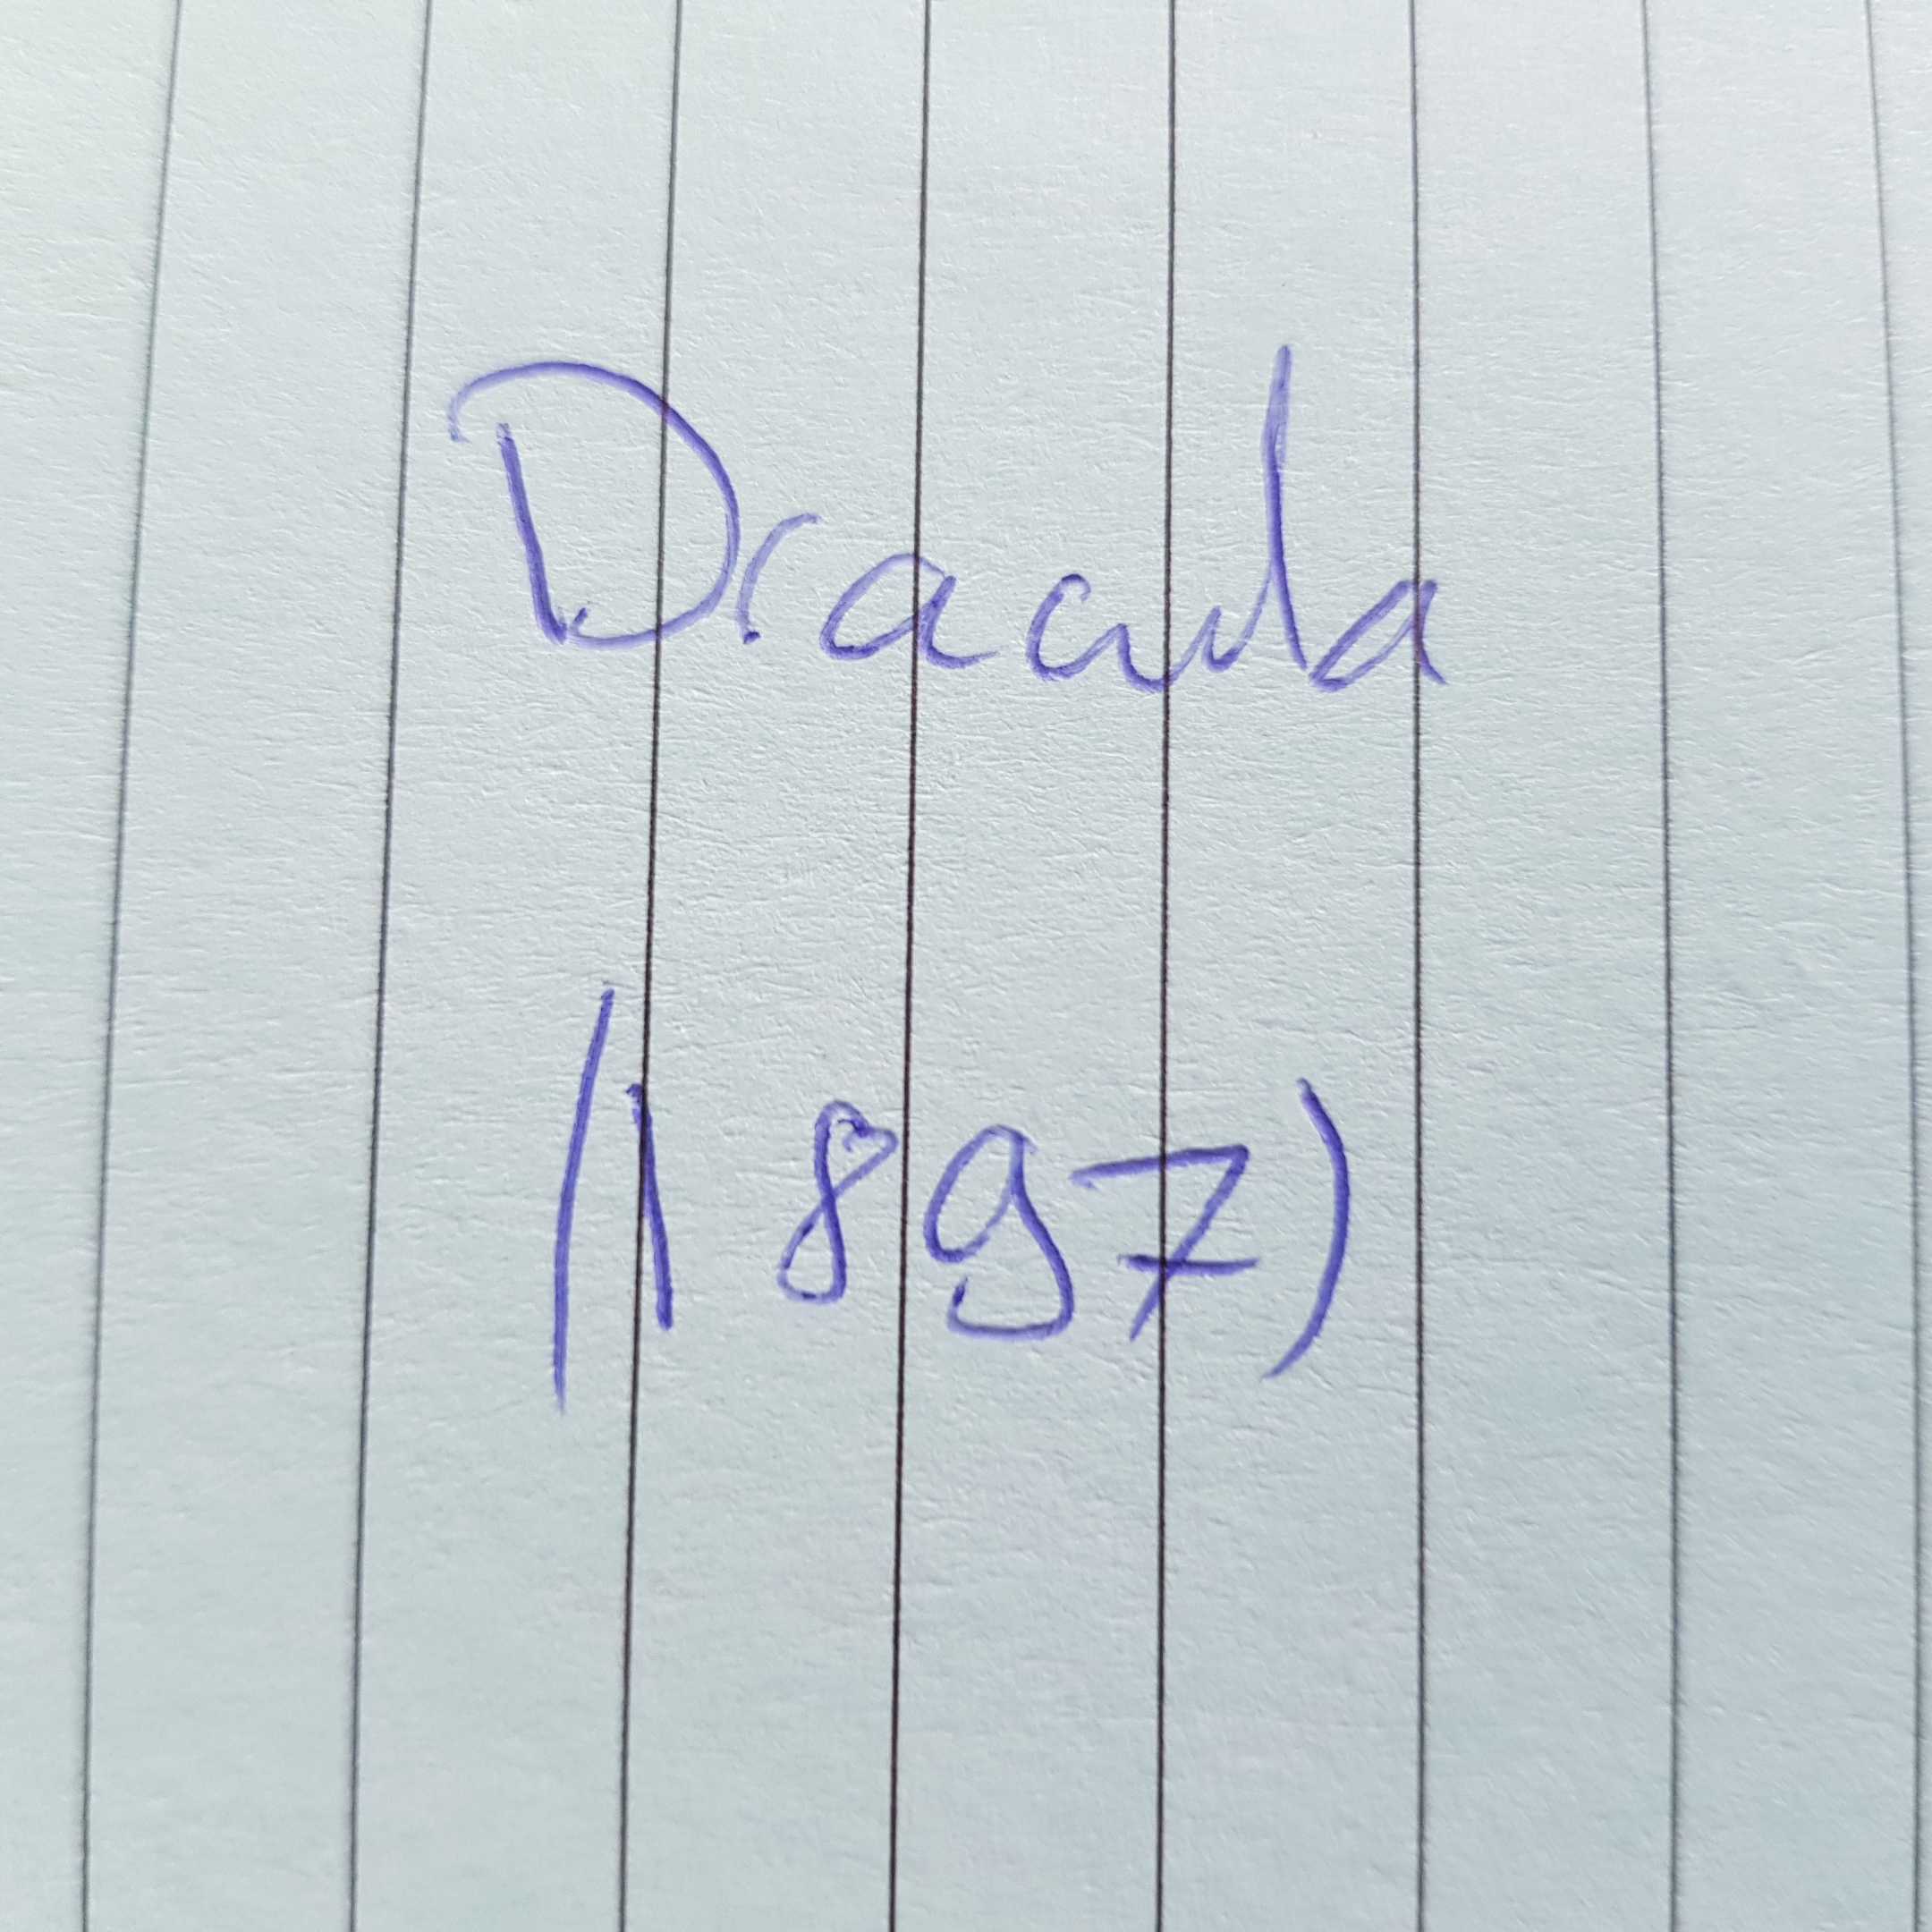 Dracula
(1897)